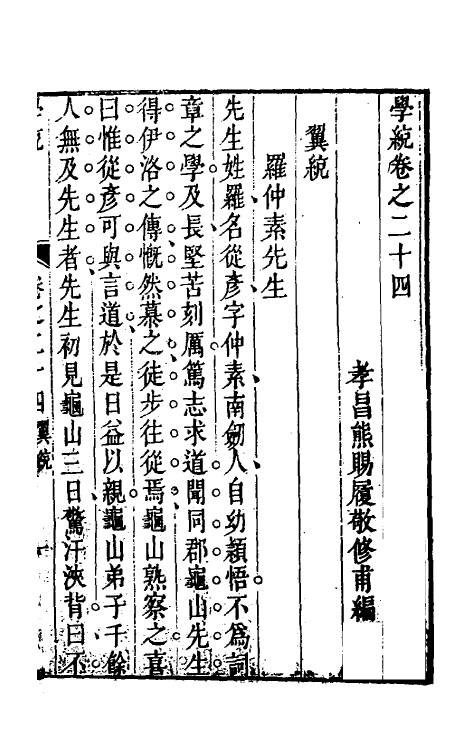 學統卷之二十四
孝昌熊賜履敬修甫編
翼統
羅仲素先生
先生姓羅名從彥字仲素南劒人自幼穎悟不為詞
章之學及長堅苦刻厲篤志求道聞同郡龜山先生
得伊洛之傳慨然慕之徒步往從焉龜山熟察之喜
曰惟從彥可與言道於是日益以親龜山弟子千餘
人無及先生者先生初見龜山三日驚汗浹背曰不
學統 卷之二十四 翼統 一